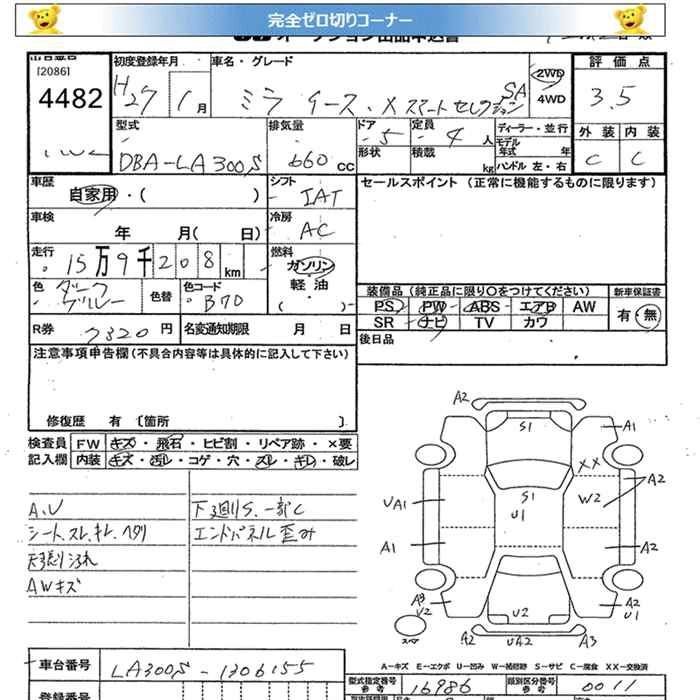 完全ゼロ切りコーナー
オークション出品申込書
[2086]
4482
初度登録年月 H27 1月
車名・グレード ミラ イース・X スマートセレクション SA
2WD
4WD
評価点
3.5
外装 内装
C C
型式 DBA-LA300S
排気量 660 CC
ドア 5
形状
定員 4 人
積載 kg
ディーラー・並行
モデル年式 年
ハンドル 左・右
車歴 自家用・( )
シフト IAT
セールスポイント (正常に機能するものに限ります)
車検 年 月( 日)
冷房 AC
走行 15万9千208 km
燃料 ガソリン
軽・油
( )
色 ダークグレー
色替
色コード B70
装備品(純正品に限り○をつけてください)
新車保証書
PS PW ABS エアB AW
SR ナビ TV カワ
有・無
R券 7320 円
名変通知期限 月 日
後日品
注意事項申告欄(不具合内容等は具体的に記入して下さい)
修復歴 有 〔箇所 〕
検査員 FW キズ・飛石・ヒビ割・リペア跡・×要
記入欄 内装 キズ・汚レ・コゲ・穴・スレ・キレ・破レ
A.U
シートスレ.キレ.ヘタリ
天張り汚れ
AWキズ
下廻りS.一部C
エンドパネル歪み
A2
S1
A1
XX
A2
UA1
S1
U1
W2
A1
A2
A3
U2
U2
A2
U1
A2
UA2
A3
A-キズ E-エクボ U-凹み W-補修跡 S-サビ C-腐食 XX-交換済
車台番号 LA300S-1306155
型式指定番号 参考 16986
類別区分番号 参考 0011
登録番号